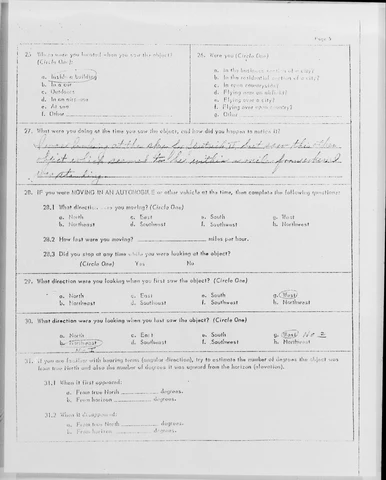 Page 3
25. Where were you located when you saw the object?
(Circle One):
a. Inside a building
b. In a car
c. Outdoors
d. In an airplane
e. At sea
f. Other
26. Were you (Circle One)
a. In the business section of a city?
b. In the residential section of a city?
c. In open countryside?
d. Flying near an airfield?
e. Flying over a city?
f. Flying over open country?
g. Other
27. What were you doing at the time you saw the object, and how did you happen to notice it?
looking at the
object which seemed to be within from where I
was standing
28. IF you were MOVING IN AN AUTOMOBILE or other vehicle at the time, then complete the following questions:
28.1 What direction were you moving? (Circle One)
a. North c. East e. South g. West
b. Northeast d. Southeast f. Southwest h. Northwest
28.2 How fast were you moving? miles per hour.
28.3 Did you stop at any time while you were looking at the object?
(Circle One) Yes No
29. What direction were you looking when you first saw the object? (Circle One)
a. North c. East e. South g. West
b. Northeast d. Southeast f. Southwest h. Northwest
30. What direction were you looking when you last saw the object? (Circle One)
a. North c. East e. South g. West No 2
b. Northeast d. Southeast f. Southwest h. Northwest
31. If you are familiar with bearing terms (angular direction), try to estimate the number of degrees the object was
from true North and also the number of degrees it was upward from the horizon (elevation).
31.1 When it first appeared:
a. From true North degrees.
b. From horizon degrees.
31.2 When it disappeared:
a. From true North degrees.
b. From horizon degrees.